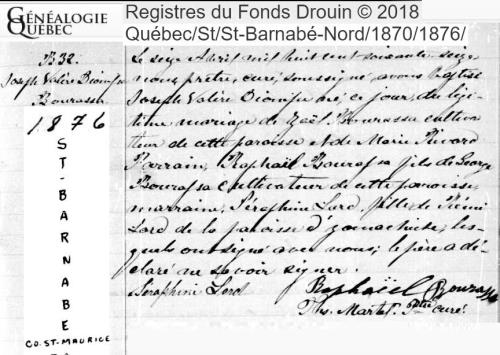 GÉNÉALOGIE
QUÉBEC
Registres du Fonds Drouin © 2018
Québec/St/St-Barnabé-Nord/1870/1876/
B32.
Joseph Valère Dionise
Bourassa
1876
ST-BARNABE
CO. ST-MAURICE
Le seize Avril mil huit cent soixante seize
nous, prêtre, curé, soussigné, avons baptisé
Joseph Valère né, ce jour, du légi-
time mariage de Zoël Bourassa cultiva
teur de cette paroisse et de Marie
Parrain, Raphaël Bourassa fils de George
Bourassa cultivateur de cette paroisse,
marraine, Séraphine Lord, fille de Rémi
Lord de la paroisse d'Yamachiche, les-
quels ont signé avec nous; le père a dé-
claré ne savoir signer.
Séraphine Lord
Raphaël Bourassa
Ths. Martel Ptre curé.